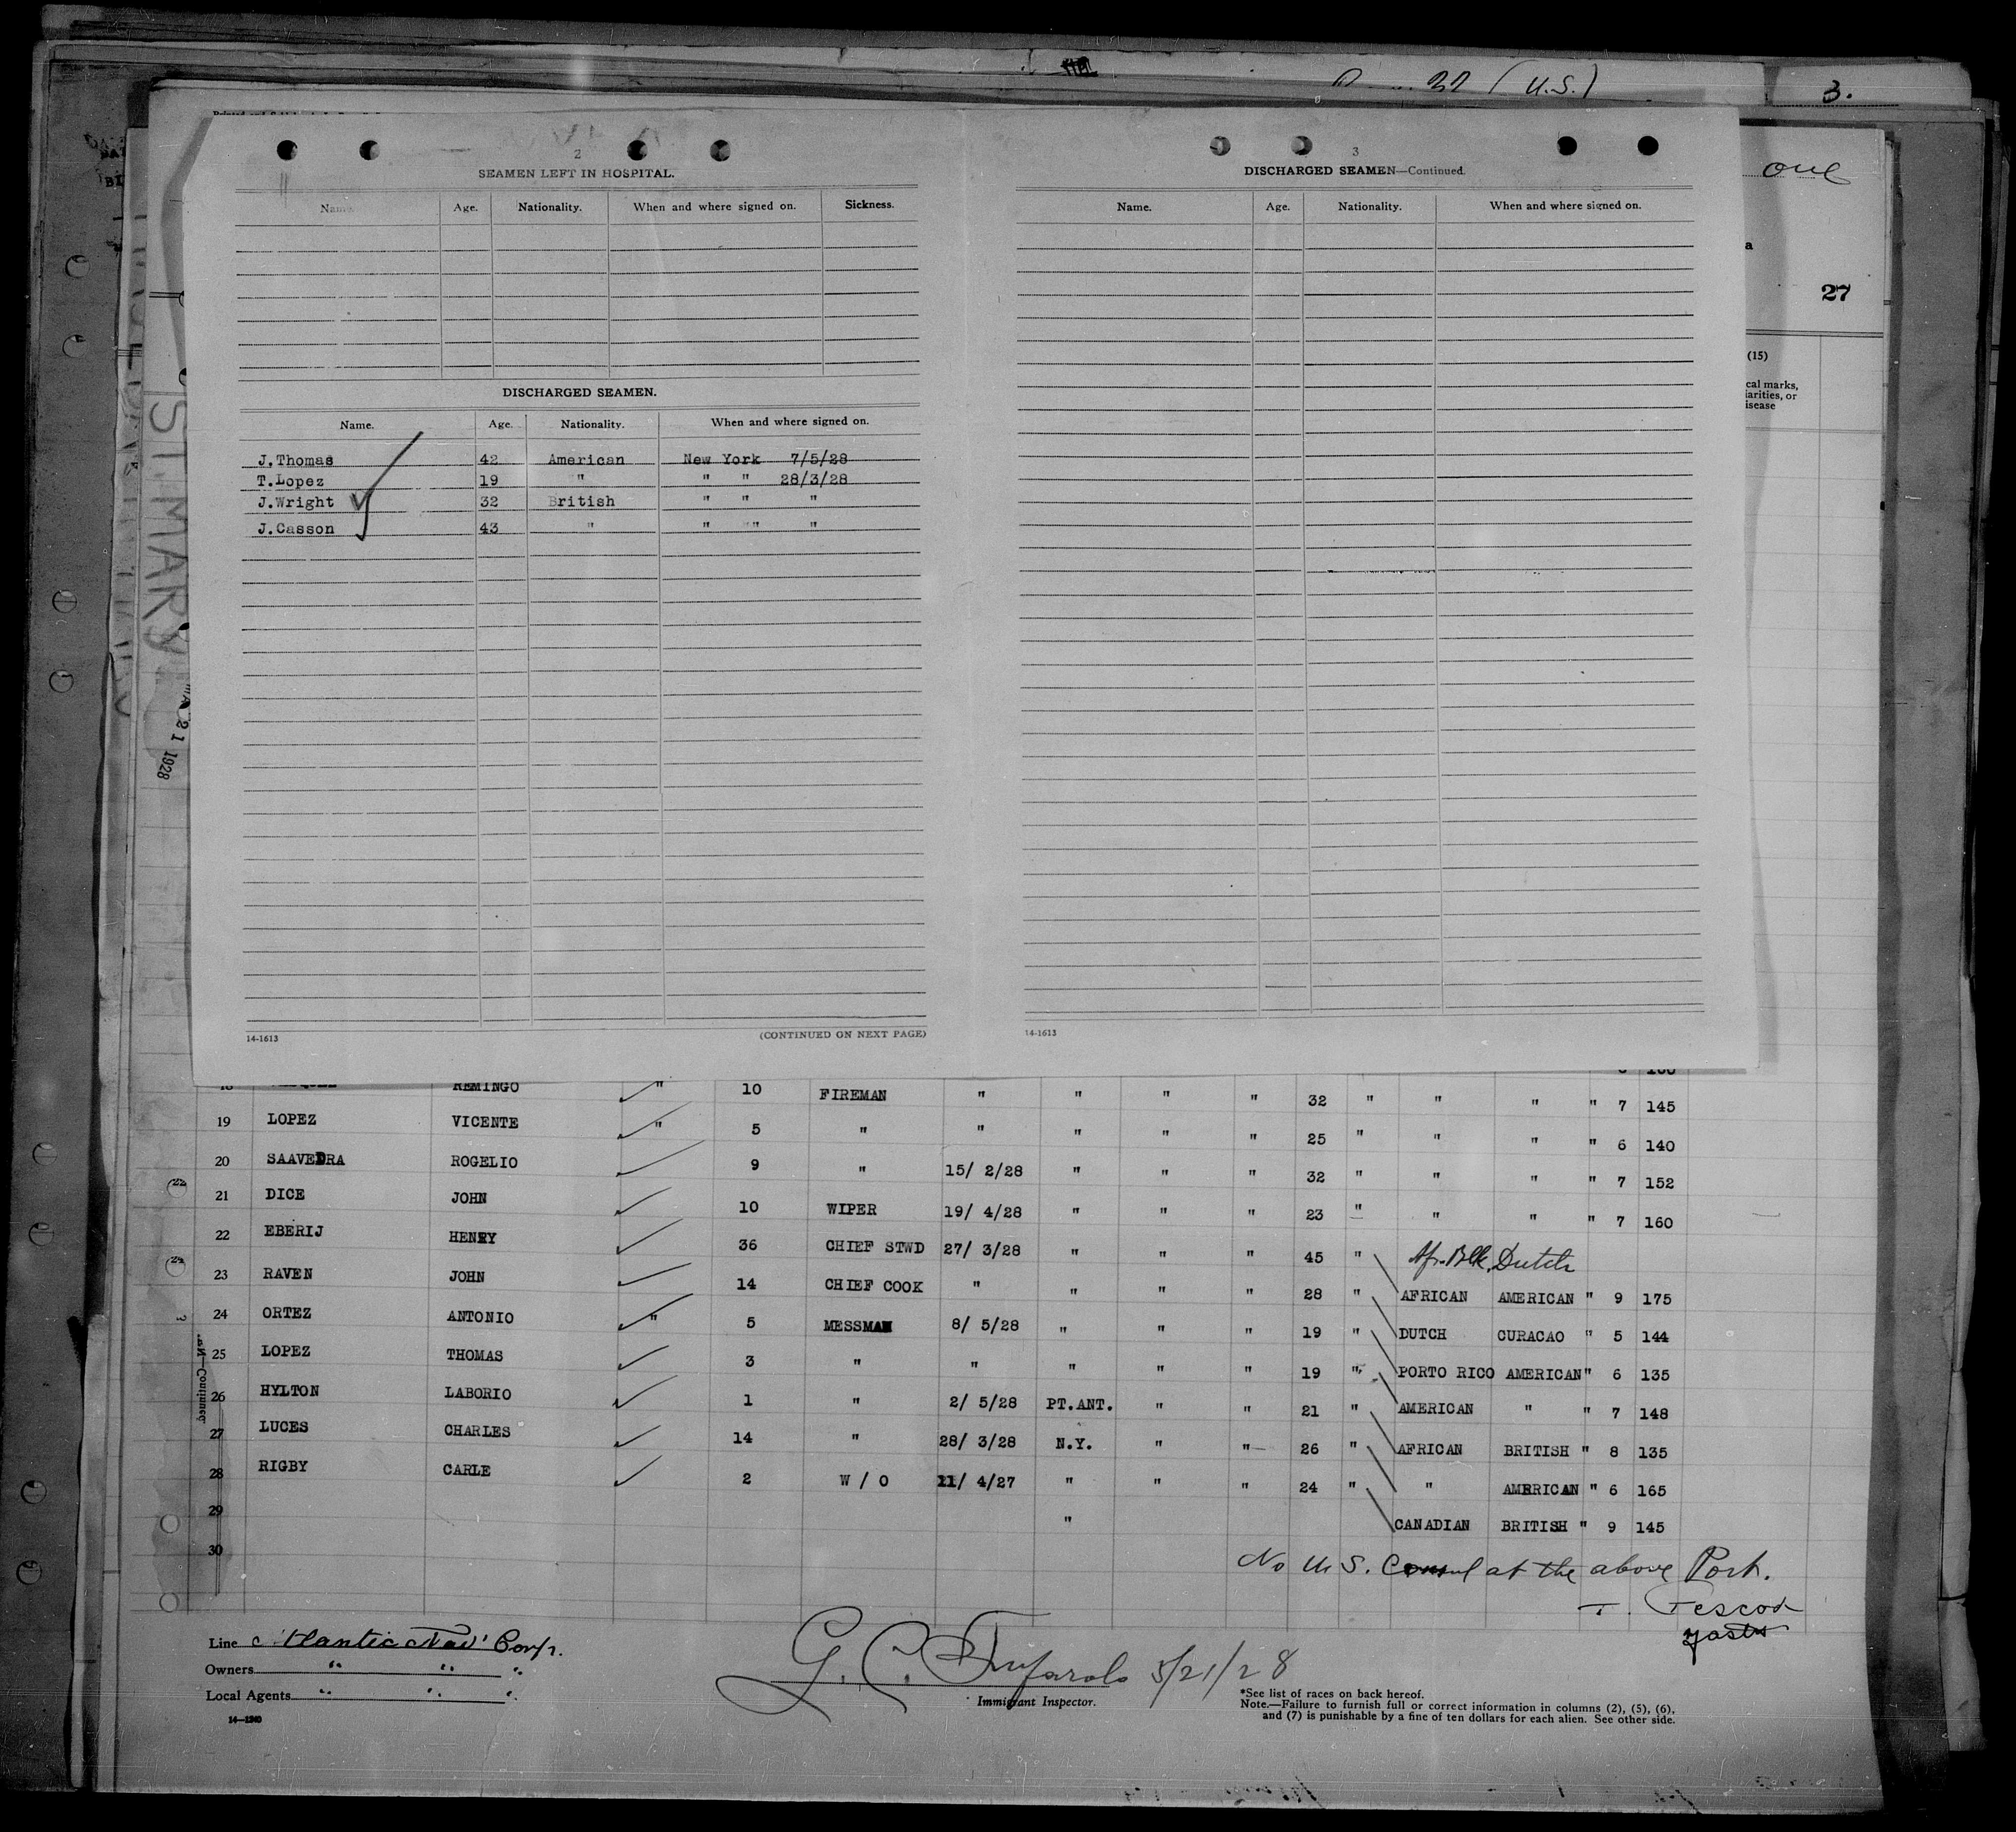 (U.S.)
3.
one
27
(15)
cal marks,
iarities, or
isease
ST. MARY
21 1928
2
SEAMEN LEFT IN HOSPITAL.
Name. Age. Nationality. When and where signed on. Sickness.
DISCHARGED SEAMEN.
Name. Age. Nationality. When and where signed on.
J.Thomas 42 American New York 7/5/28
T.Lopez 19 " " " 28/3/28
J.Wright 32 British " " "
J.Casson 43 " " " "
14-1613 (CONTINUED ON NEXT PAGE)
3
DISCHARGED SEAMEN—Continued.
Name. Age. Nationality. When and where signed on.
14-1613
18 REMINGO " 10 FIREMAN " " " " 32 " " " " 7 145
19 LOPEZ VICENTE " 5 " " " " " 25 " " " " 6 140
20 SAAVEDRA ROGELIO 9 " 15/ 2/28 " " " 32 " " " " 7 152
21 DICE JOHN 10 WIPER 19/ 4/28 " " " 23 " " " " 7 160
22 EBERIJ HENRY 36 CHIEF STWD 27/ 3/28 " " " 45 " Afr. Blk. Dutch
23 RAVEN JOHN 14 CHIEF COOK " " " " 28 " AFRICAN AMERICAN " 9 175
24 ORTEZ ANTONIO " 5 MESSMAN 8/ 5/28 " " " 19 " DUTCH CURACAO " 5 144
25 LOPEZ THOMAS 3 " " " " " 19 " PORTO RICO AMERICAN " 6 135
26 HYLTON LABORIO 1 " 2/ 5/28 PT.ANT. " " 21 " AMERICAN " " 7 148
27 LUCES CHARLES 14 " 28/ 3/28 N.Y. " " 26 " AFRICAN BRITISH " 8 135
28 RIGBY CARLE 2 W / O 11/ 4/27 " " " 24 " " AMERICAN " 6 165
29 " CANADIAN BRITISH " 9 145
30
No U.S. Consul at the above Port.
Line Atlantic Nav' Corp.
Owners " " "
Local Agents " " "
14—1240
G. C. 5/21/28
Immigrant Inspector.
*See list of races on back hereof.
Note.—Failure to furnish full or correct information in columns (2), (5), (6),
and (7) is punishable by a fine of ten dollars for each alien. See other side.